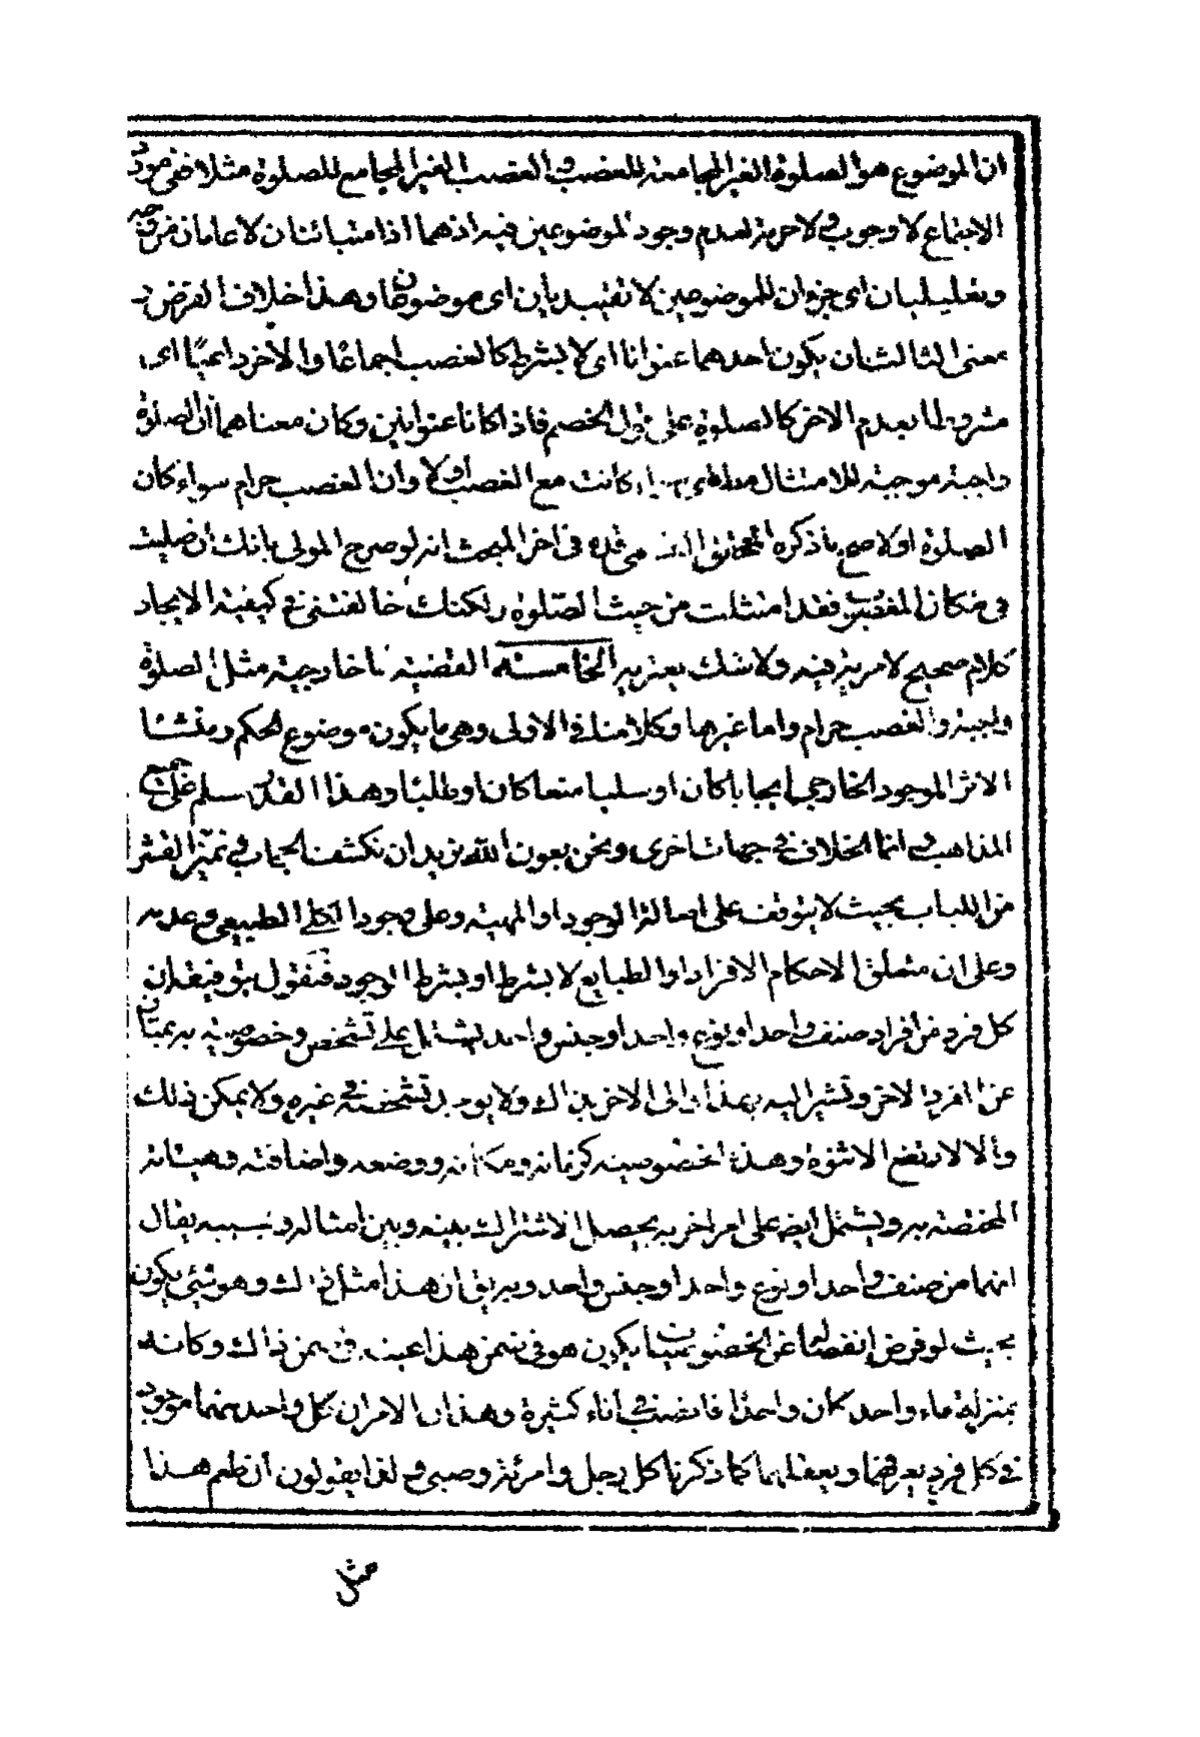 ان الموضوع هو الصلوة الغير المجامعة للغصب و الغصب الغير المجامع للصلوة مثلا ففى مورد
الاجتماع لا وجوب و لا حرمة لعدم وجود الموضوعين فيه اذ هما اذا متبائنان لا عامان من وجه
و تعليليان اى جزوان للموضوعين لا تقييديان اى موضوعان و هذا خلاف الفرض
معنى الثالث ان يكون احدهما عنوانا اى لا بشرط كالغصب اجماعا و الاخر اى
مشروطا بعدم الاخر كالصلوة على قول الخصم فاذا كانا عنوانين و كان معناهما ان الصلوة
واجبة موجبة للامتثال كانت مع الغصب او لا و ان الغصب حرام سواء كان
الصلوة او لا صح ما ذكره المحقق فى اخر المبحث انه لو صرح المولى بانك ان صليت
فى مكان المغصوب فقد امتثلت من حيث الصلوة و لكنك خالفتنى فى كيفية الايجاد
كلام صحيح لا مرية فيه و لا شك يعتريه الخامسة القضية اما خارجية مثل الصلوة
واجبة و الغصب حرام و اما غيرها و كلامنا فى الاولى و هى ما يكون موضوع الحكم و منشا
الاثر الموجود الخارجى ايجابا كان او سلبا منعا كان او طلبا و هذا القدر مسلم على جميع
المذاهب و انما الخلاف فى جهات اخرى و نحن بعون الله نريد ان نكشف الحجاب فى تميز القشر
من اللباب بحيث لا يتوقف على اصالة الوجود او المهية و على وجود الكلى الطبيعى و عدمه
و على ان متعلق الاحكام الافراد او الطبايع لا بشرط او بشرط الوجود فنقول بتوفيقه ان
كل فرد من افراد صنف واحد او نوع واحد او جنس واحد يشتمل على تشخص و خصوصية به يمتاز
عن الفرد الاخر و تشير اليه بهذا و الى الاخر بذاك و لا يوجد تشخصه فى غيره و لا يمكن ذلك
و الا لارتفع الاثنوة و هذه الخصوصية كزمانه و مكانه و وضعه و اضافته و هيئاته
المختصة به و يشتمل ايضا على امر اخر به يحصل الاشتراك بينه و بين امثاله و بسببه يقال
انهما من صنف واحد او نوع واحد او جنس واحد و به يق ان هذا مثل ذلك و هو شئ يكون
بحيث لو فرض انفصالها عن الخصوصيتين يكون هو فى ضمن هذا عينه فى ضمن ذاك و كانه
بمنزلة ماء واحد كان واحدا فانصب فى اناء كثيرة و هذان الامران كل واحد منهما موجود
فى كل فرد يعرفهما و يعقلهما كما ذكرنا كل رجل و امرئة و صبى و لذا يقولون ان طعم هذا
مثل